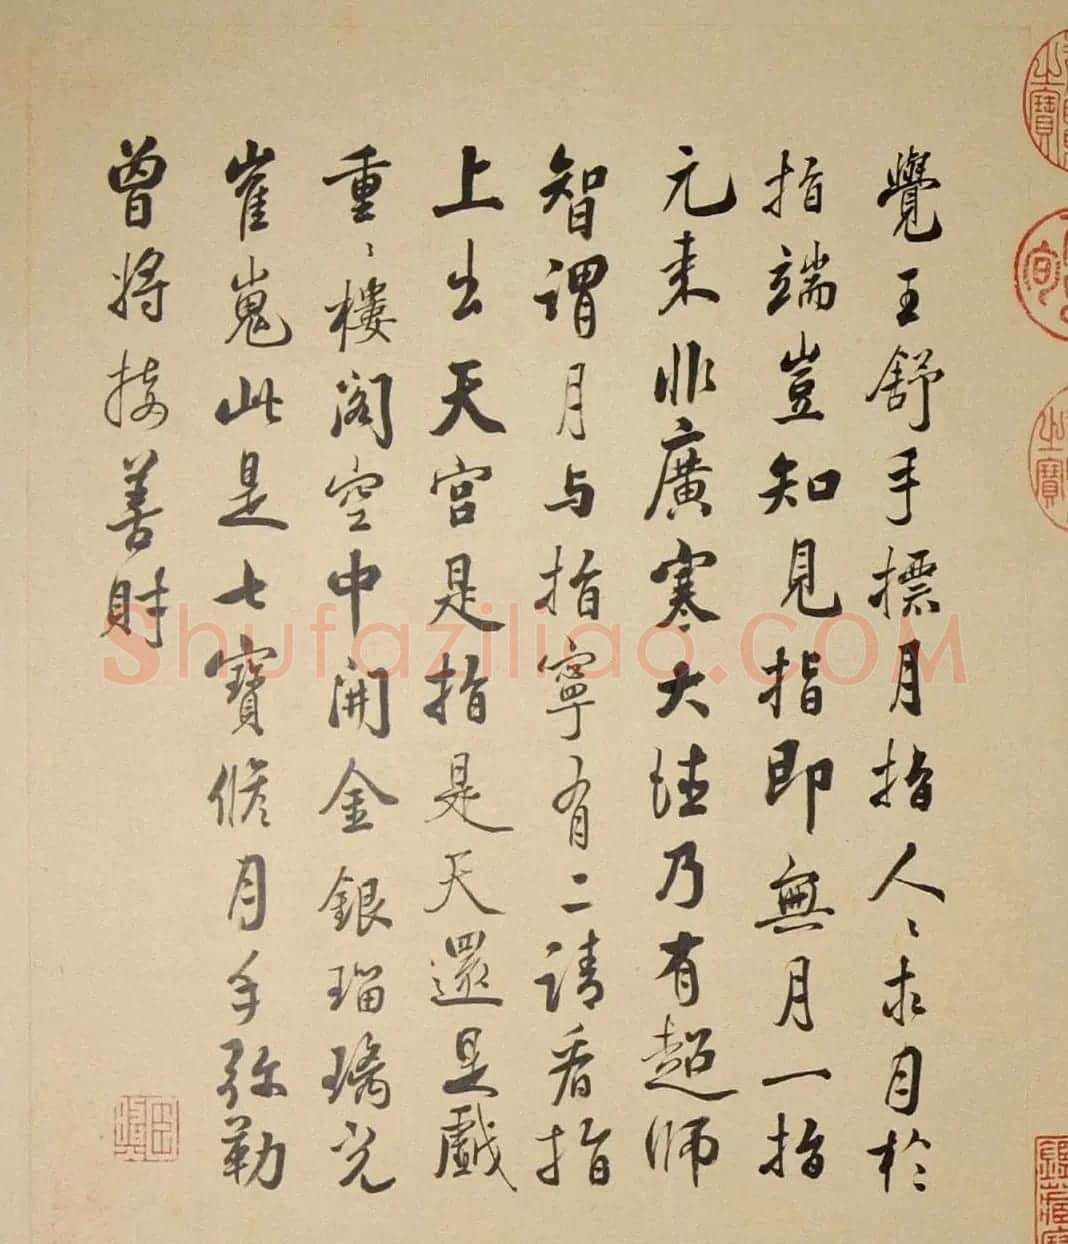 覺王舒手標月指人〻求月於
指端豈知見指即無月一指
元来非廣寒大法乃有超師
智謂月与指寧有二請看指
上出天宮是指是天還是戲
重〻樓閣空中開金銀瑠璃光
崔嵬此是七寶修月手弥勒
曾将接善財
Shufaziliao.COM